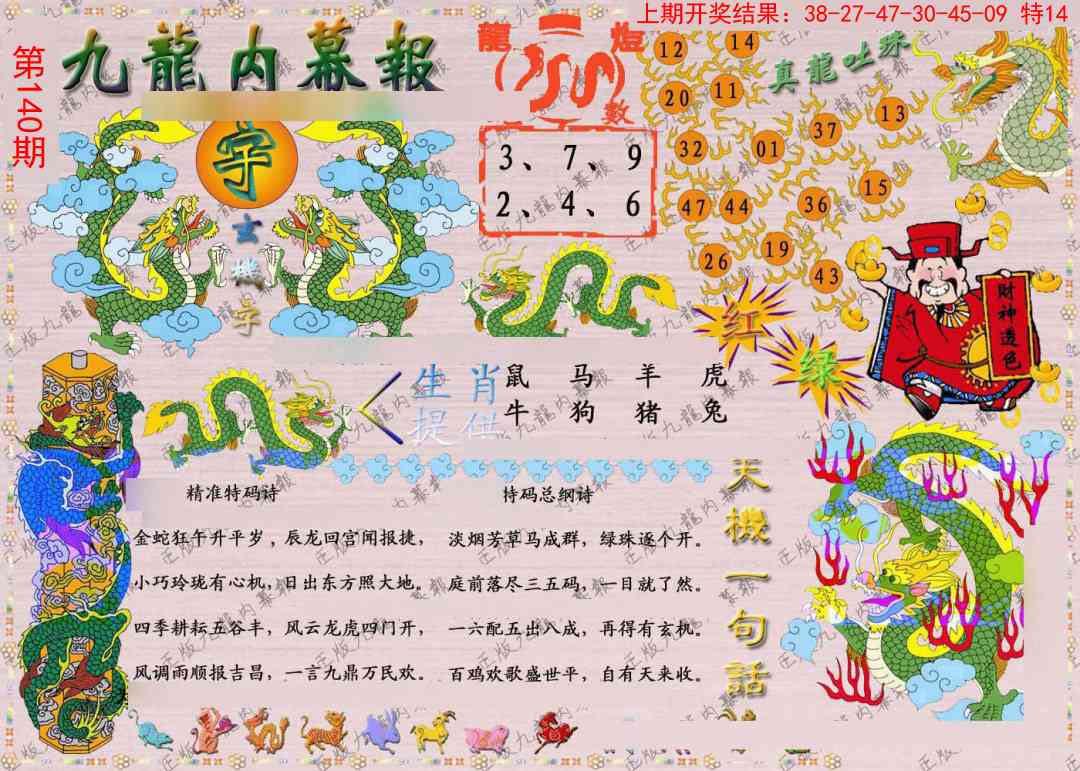 上期开奖结果：38-27-47-30-45-09 特14
第140期
九龍内幕報
字
玄
機
字
龍
炮
数
3、7、9
2、4、6
真龍吐珠
12
14
20
11
13
37
32
01
15
47
44
36
19
26
43
财神透色
红
绿
生肖
提供
鼠 马 羊 虎
牛 狗 猪 兔
精准特码诗
金蛇狂午升平岁，辰龙回宫闻报捷，
小巧玲珑有心机，日出东方照大地。
四季耕耘五谷丰，风云龙虎四门开，
风调雨顺报吉昌，一言九鼎万民欢。
持码总纲诗
淡烟芳草马成群，绿珠逐个开。
庭前落尽三五码，一目就了然。
一六配五出八成，再得有玄机。
百鸡欢歌盛世平，自有天来收。
天機一句話
正版九龍内幕報